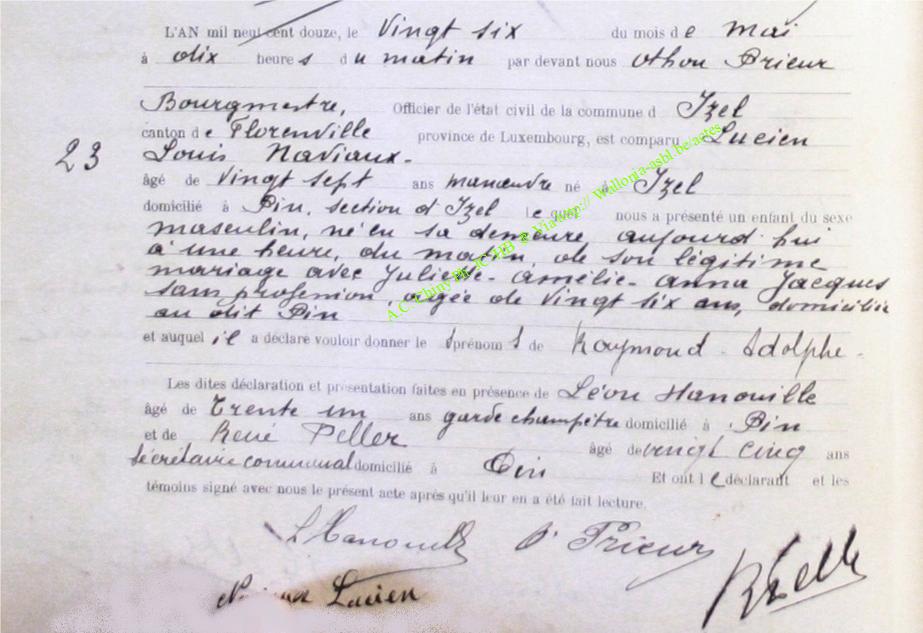 L'AN mil neuf cent douze, le vingt six du mois de mai
à dix heures du matin par devant nous Othon Prieur
Bourgmestre, Officier de l'état civil de la commune d Izel
canton de Florenville province de Luxembourg, est comparu Lucien
23 Louis Naviaux.
âgé de vingt sept ans manœuvre né à Izel
domicilié à Pin, section d'Izel lequel nous a présenté un enfant du sexe
masculin, né en sa demeure, aujourd'hui
à une heure, du matin, de son légitime
mariage avec Juliette-Amélie-Anna Jacques
sans profession, agée de vingt six ans, domiciliée
au dit Pin
et auquel il a déclaré vouloir donner le s prénom s de Raymond-Adolphe-
Les dites déclaration et présentation faites en présence de Léon Hanouille
âgé de trente un ans garde champêtre domicilié à Pin
et de René Peller âgé de vingt cinq ans
secrétaire communal domicilié à Pin Et ont le déclarant et les
témoins signé avec nous le présent acte après qu'il leur en a été fait lecture.
O. Prieur
Lucien
A.C. Chiny Via http://Wallonia-asbl.be/actes